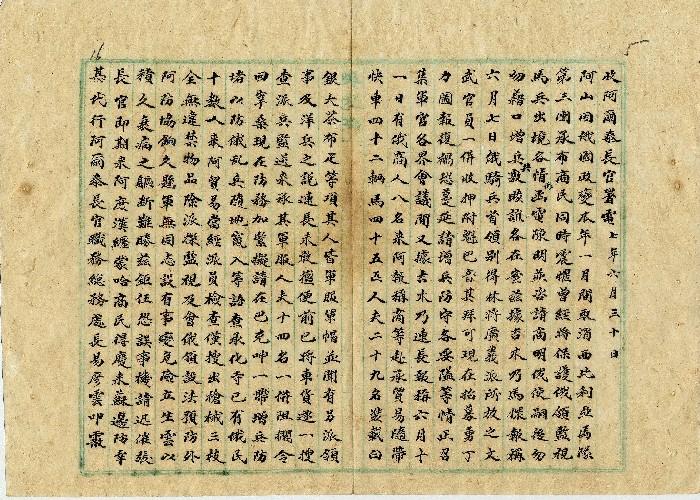 收阿爾泰長官署電 七年六月三十日
阿山因俄國政變本年一月間取消西北利亞馬隊
第三團承布商民同時震懼曾經將保護俄領監視
馬兵出境各情形函電陳明並咨請商明俄使嗣後勿
藉口增兵致啟各在案茲據吉木乃馬探報稱
六月七日俄騎兵首領別得林將廣義派所放之文
武官員一併收押附魁巴音其拜可現在招募勇丁
力圖報復禍恐蔓延請增兵防守各要隘等情正召
集軍官各界會議間又據吉木乃邊長報稱六月十
一日有俄商人八名來阿報稱商等赴承貿易隨帶
快車四十二輛馬四十五匹人夫二十九名裝載白
銀大茶布疋等項其人皆軍服軍帽並聞有另派領
事及洋兵之說邊長未敢擅便前已將車貨逐一搜
查派兵監送來承其軍服人夫十四名一併阻攔令
回寧桑現在防務加緊擬請在巴克呻一帶增兵防
堵以防俄亂兵隨地竄入等語查承化寺已有俄民
十數人來阿貿易當經派員檢查僅搜出槍械三枝
全無違禁物品除派監視及會俄領設法預防外
阿防協餉久懸軍無同志設有事變危險立生雲以
積久衰病之軀斷難勝茲鉅任恐誤事機請迅催張
長官即期來阿庶漢纏蒙哈商民得慶來蘇邊防幸
甚代行阿爾泰長官職務總務處長易彥雲叩霰